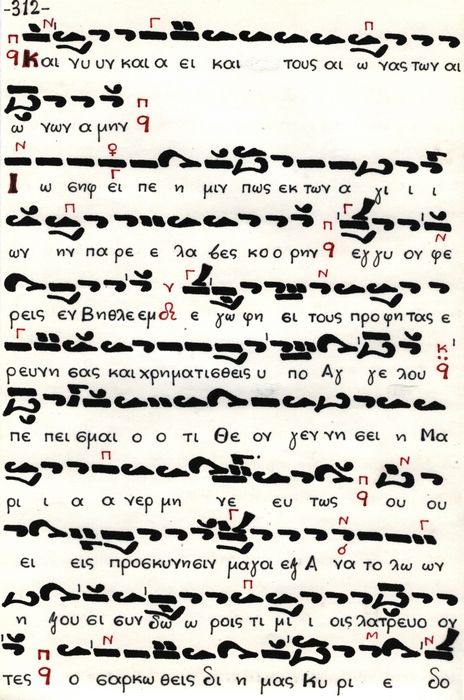 -312-
Και νυ υν και α ει και τους αι ω νας των αι
ω νων α μην
Ι ω σηφ ει πε η μιν πως εκ των α γι ι ι
ων ην πα ρε ε λα βες κο ο ρην εγ γυ ον φε
ρεις εν Βηθλε εμ ε γω φη σι τους προ φη τας ε
ρευνη σας και χρηματι σθεις υ πο Αγ γε λου
πε πει σμαι ο ο τι Θε ον γεν νη σει η Μα
ρι ι α α νερ μη νε ευ τως ου ου
ει εις προσκυνησιν μαγοι εξ Α να το λω ων
η ξου σι συν δω ω ροις τι μι ι οις λατρευο ον
τες ο σαρκω θεις δι η μας Κυ ρι ε δο